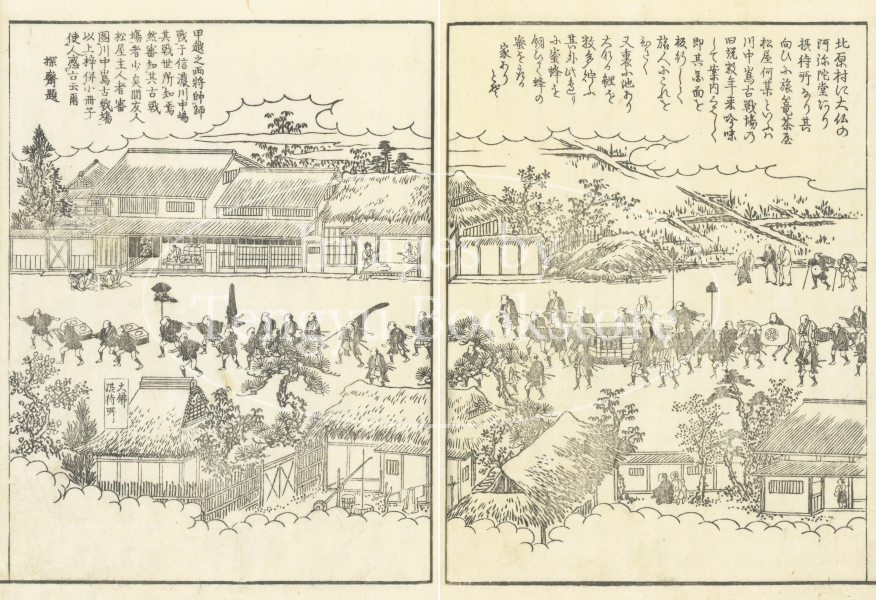 北原村に大仏の
阿弥陀堂あり
摂待所あり其
向ひに旅篭茶屋
松屋何某といふハ
川中嶌古戦場の
旧説数年来吟味
して案内くハしく
即其図面を
板行して
旅人にこれを
ひさく
又裏に池あり
大なる鯉を
数多飼ふ
其外
に蜜蜂を
蜂の
蜜をとる
家あり
とぞ
甲越之両将帥師
戦于信濃川中嶋
其戦世所知焉
然審知其古戦
場者少矣間友人
松屋主人者審
図川中嶌古戦場
以上梓併小冊子
使人感古云爾
探齋題
大佛
摂待所
Images by
Tengyu Bookstore